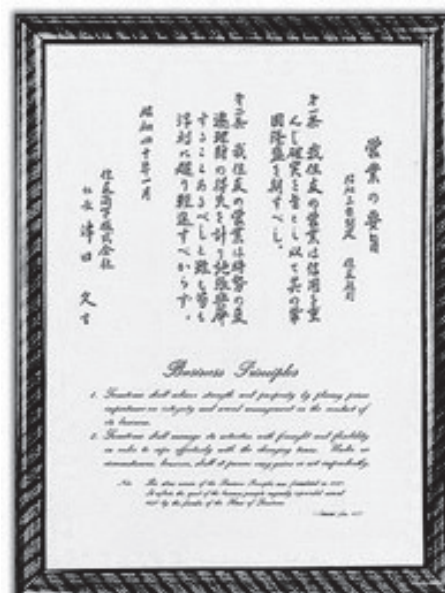 営業の要旨
第一条 我住友の営業は信用を重
んじ確実を旨とし以て其の鞏
固隆盛を期すべし。
第二条 我住友の営業は時勢の変
遷理財の得失を計り弛張興廃
することあるべしと雖も苟も
浮利に趨り軽進すべからず。
昭和四十年一月
住友商事株式会社
社長 津田 久
Business Principles
1. Sumitomo shall achieve strength and prosperity by placing prime
importance on integrity and sound management in the conduct of
its business.
2. Sumitomo shall manage its activities with foresight and flexibility
in order to cope effectively with the changing times. Under no
circumstances, however, shall it pursue easy gains or act imprudently.